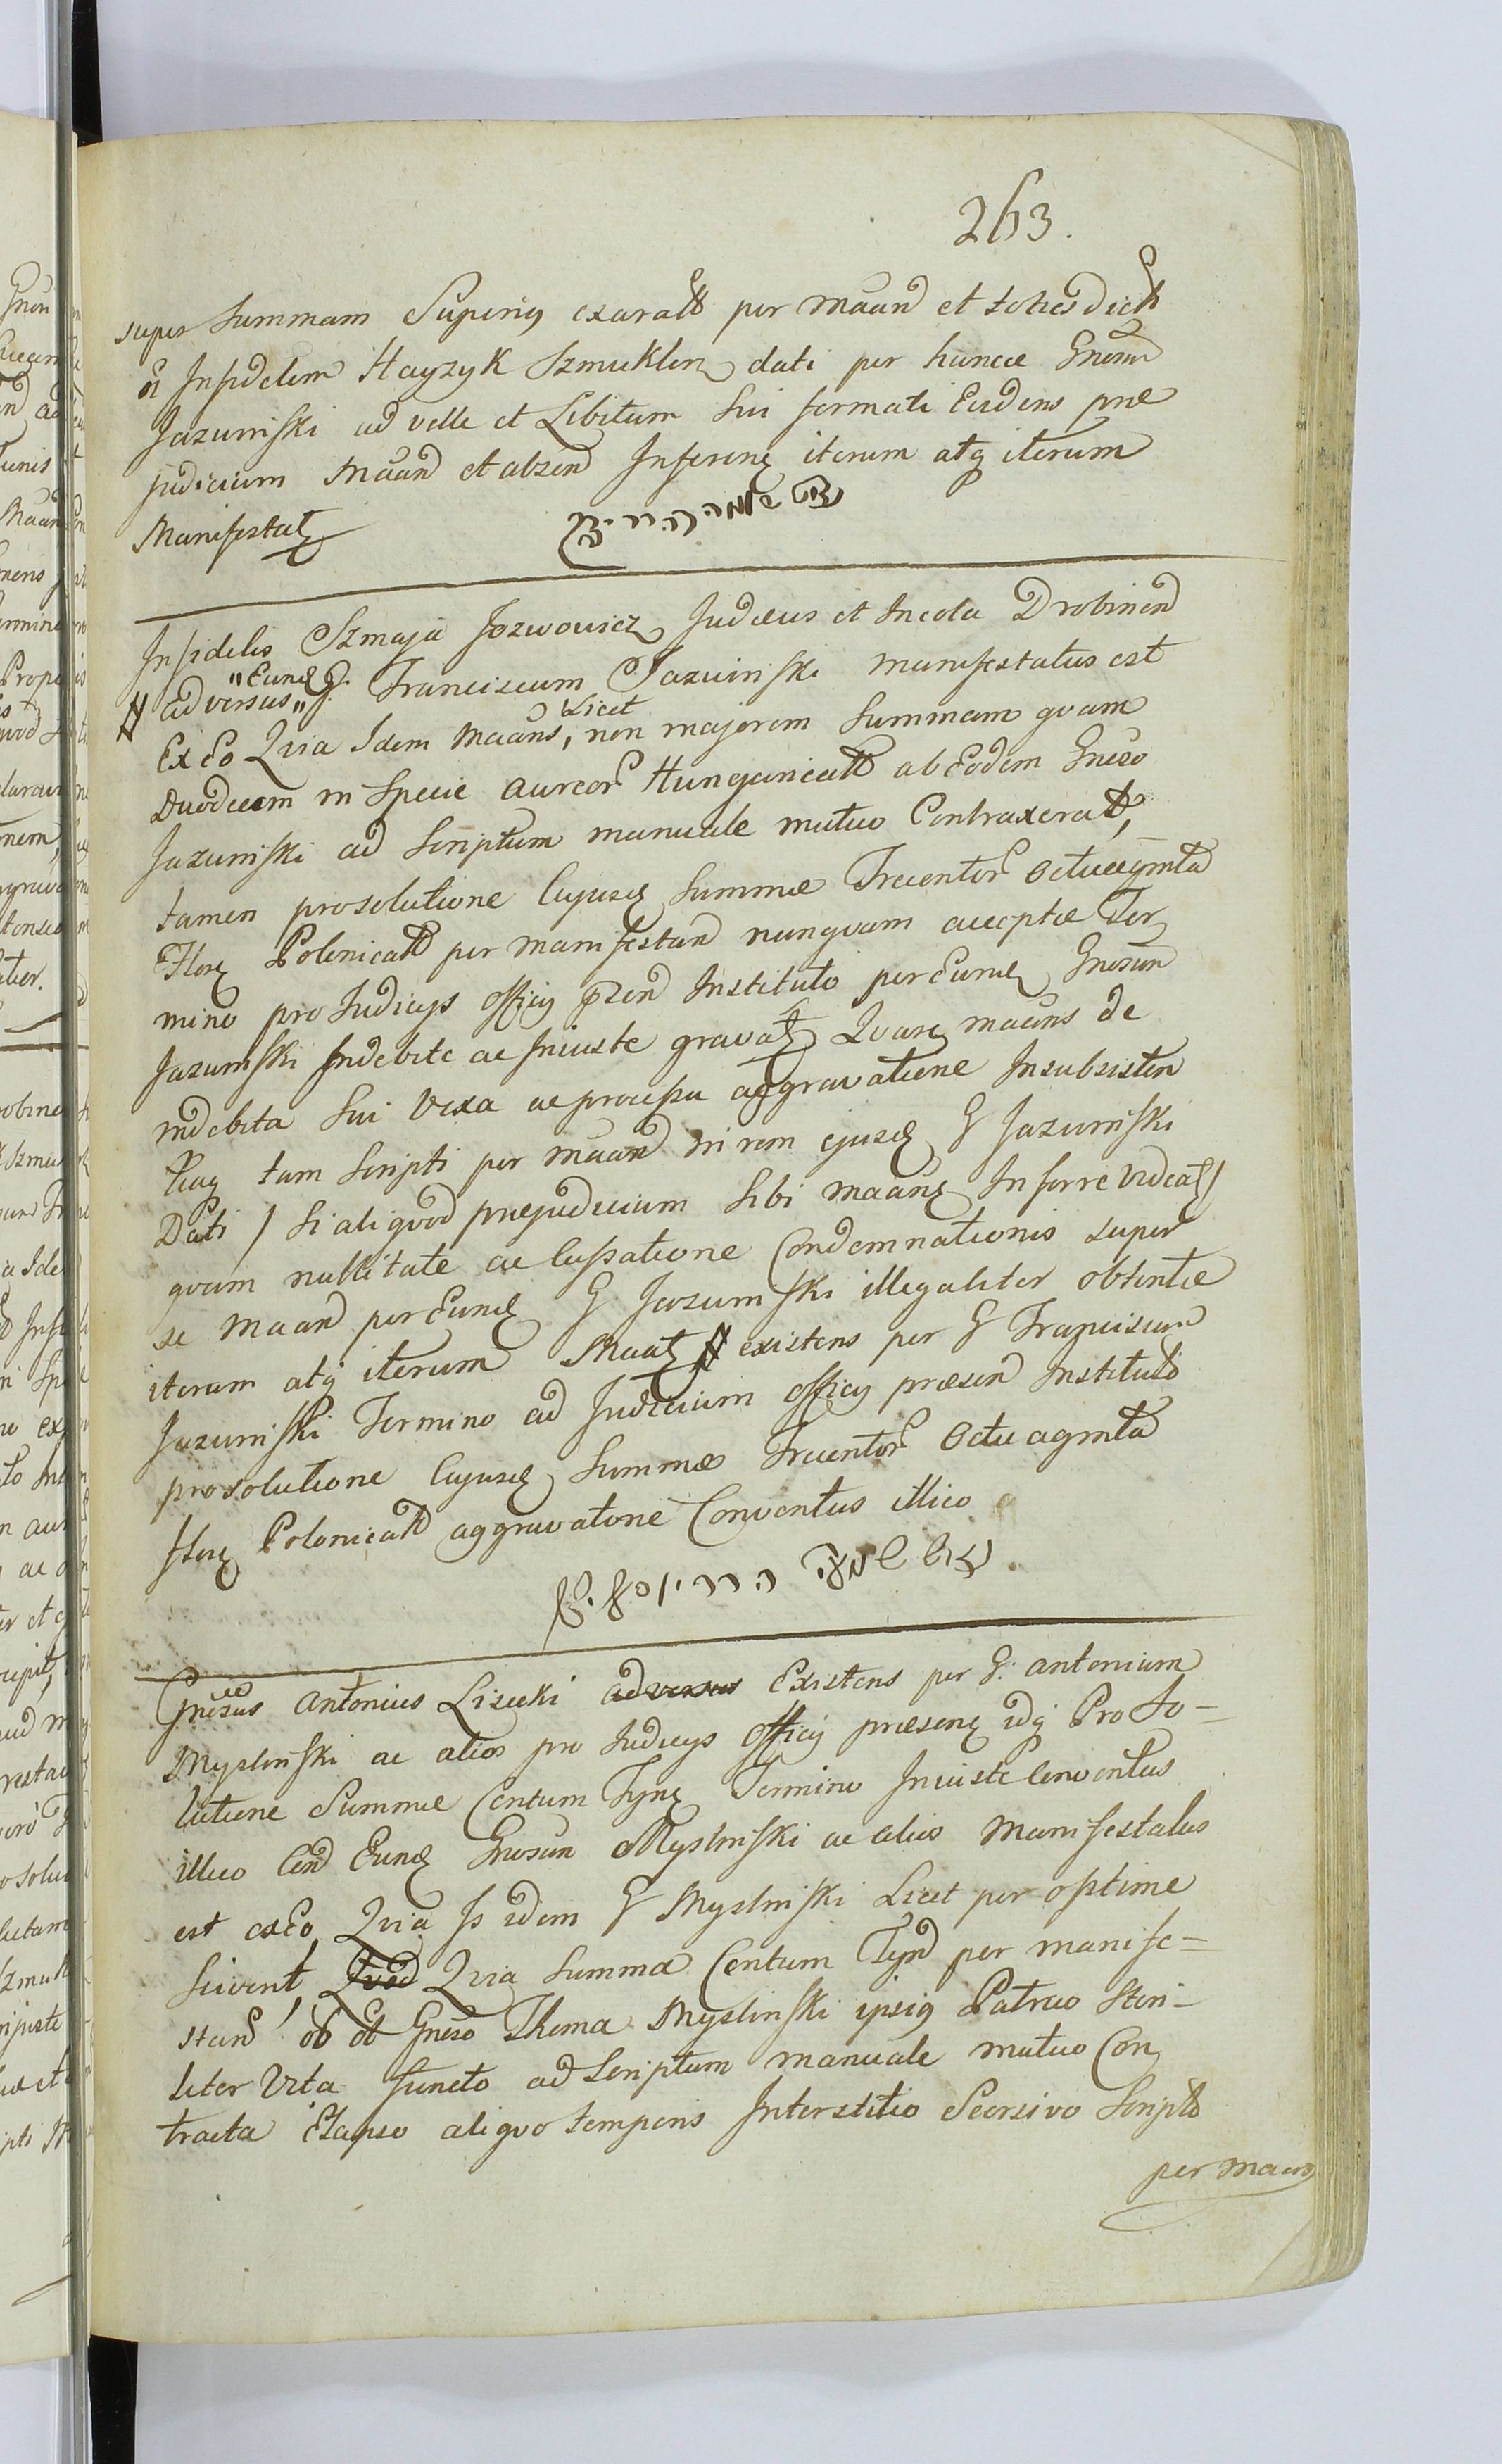 263.
super Summam Superius exaratt per Maand et toties dictt
Infidelem Hayzyk Szmuklerz dati per hunce Gnosum
Jazwinski ad velle et Libitum sui formati Evidens præ
judicium Maand et abzend Inferens iterum atq iterum
Manifestat
Infidelis Szmaja Jozwowicz Judæus et Incola Drobinend
"Eund G.
# adversus" G. Franciscum Jazwinski manifestatus est
Licet
Ex Eo Qvia Idem Maans, non majorem Summam qvam
Duodecem in Specie aureor Hungaricatt ab Eodem Gneso
Jazwinski ad Scriptum manuale mutuo Contraxeratt,
tamen pro solutione Cujusd Summæ Trecentor Octuagintta
Flor Polonicatt per manifestand nunqvam acceptæ Ter
mino pro Judicys Officy pszend Instituto per Eund Gnosum
Jazwinski Indebite ac Iniuste gravat Qvare maans de
indebita sui Vexa ac processu aggravatione Insubsisten
tiaq tam Scripti per Maand in rem ejusd G Jazwinski
Dati / si aliqvod præjudicium Sibi maans Inferre videat /
qvam nullitate ac Cassatione Condemnationis super
se Maand per Eund G Jazwinski illegaliter obtentæ
iterum atq iterum Maat # existens per G Franciscum
Jazwinski Termino ad Judicium Officy præsend Instituto
pro solutione Cujusd Summæ Trecentor Octuagintta
Flor Polonicatt aggravatone Conventus illico
Gnesus Antonius Lisecki adversus Existens per G. Antonium
Myslinski ac alios pro Judicys Officy præsend idq Pro So-
lutione Summæ Centum Tynf Termino Iniuste Conventus
illico Con Eund Gnosum Myslinski ac alios Manifestatus
est ex Eo Qvia Is idem G Myslinski Licet per optime
Scivent, Qvod Qvia Summa Centum Tynf per manife=
stand ob ot Gneso Thoma Myslinski ipsius Patruo Steri-
liter Vita functo ad Scriptum manuale mutuo Con
tracta Elapso aliqvo temporis Interstitio Seorsivo Scripto
per maand